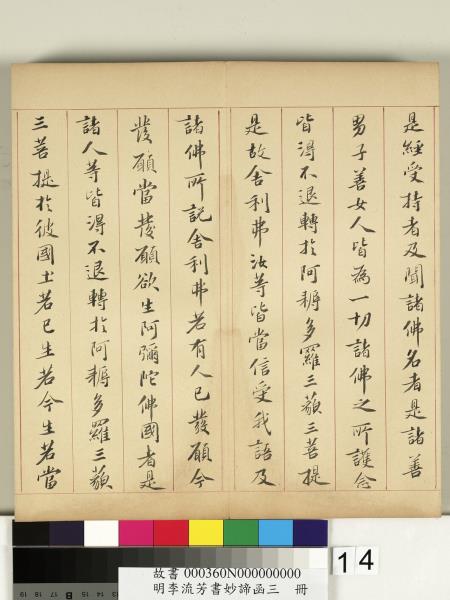 是經受持者及聞諸佛名者是諸善
男子善女人皆為一切諸佛之所護念
皆得不退轉於阿耨多羅三藐三菩提
是故舍利弗汝等皆當信受我語及
諸佛所說舍利弗若有人已發願今
發願當發願欲生阿彌陀佛國者是
諸人等皆得不退轉於阿耨多羅三藐
三菩提於彼國土若已生若今生若當
14
故書 000360N000000000
明李流芳書妙諦函三 冊